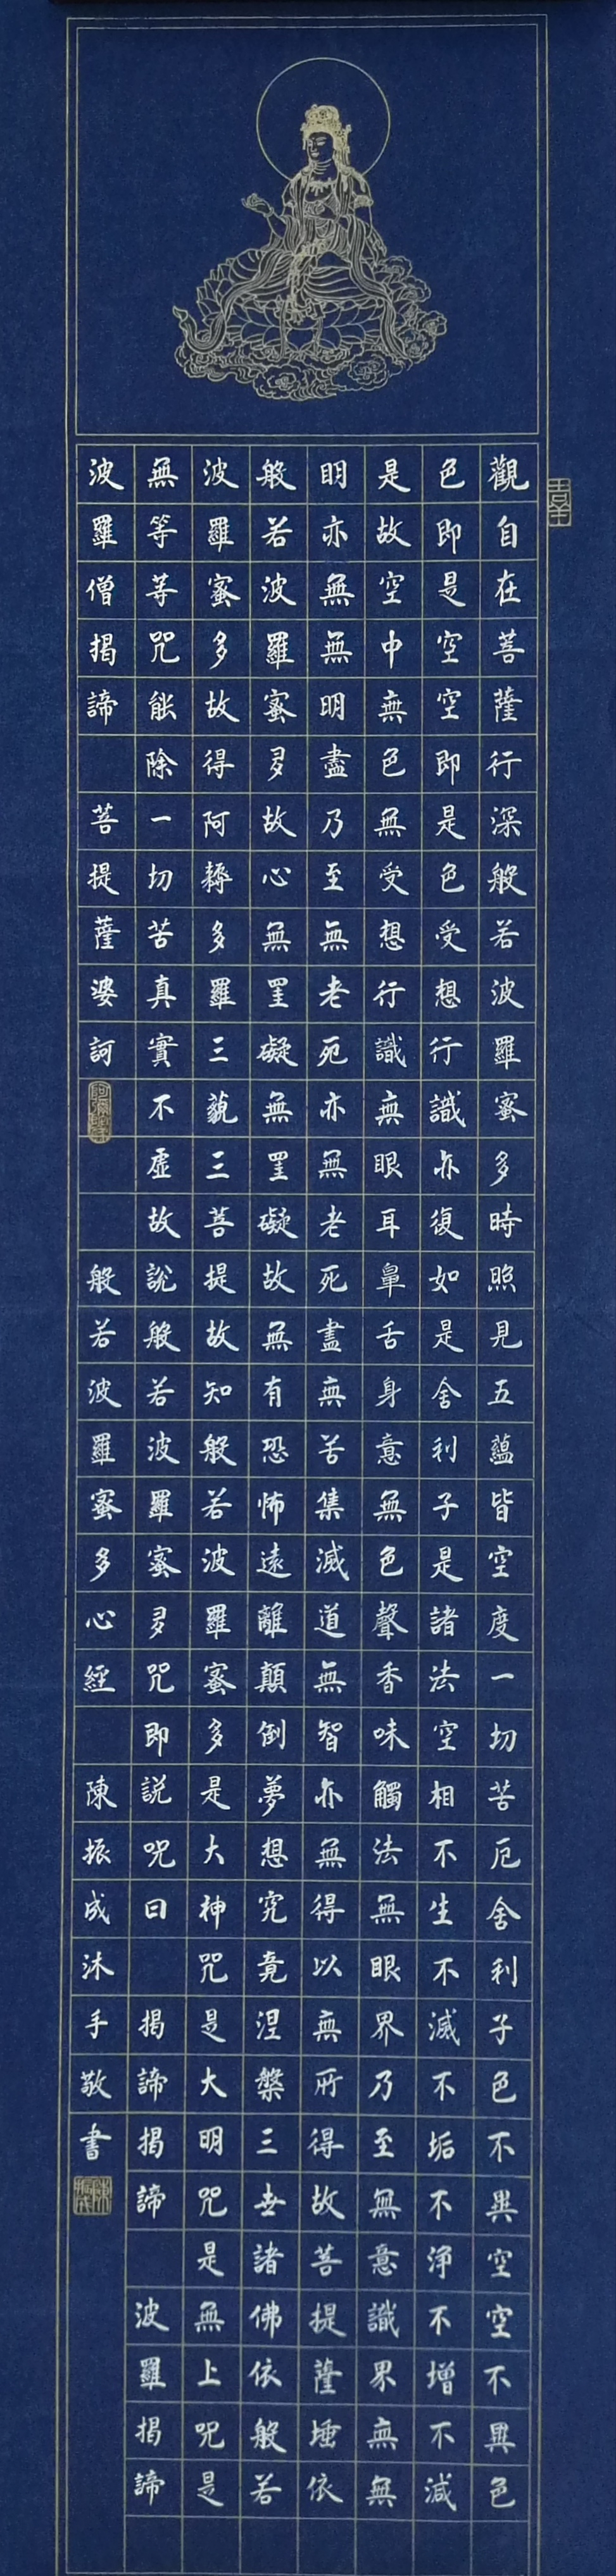 觀自在菩薩行深般若波羅蜜多時照見五蘊皆空度一切苦厄舍利子色不異空空不異色
色即是空空即是色受想行識亦復如是舍利子是諸法空相不生不滅不垢不淨不增不減
是故空中無色無受想行識無眼耳鼻舌身意無色聲香味觸法無眼界乃至無意識界無無
明亦無無明盡乃至無老死亦無老死盡無苦集滅道無智亦無得以無所得故菩提薩埵依
般若波羅蜜多故心無罣礙無罣礙故無有恐怖遠離顛倒夢想究竟涅槃三世諸佛依般若
波羅蜜多故得阿耨多羅三藐三菩提故知般若波羅蜜多是大神咒是大明咒是無上咒是
無等等咒能除一切苦真實不虛故說般若波羅蜜多咒即說咒曰 揭諦揭諦 波羅揭諦
波羅僧揭諦 菩提薩婆訶 般若波羅蜜多心經 陳振成沐手敬書